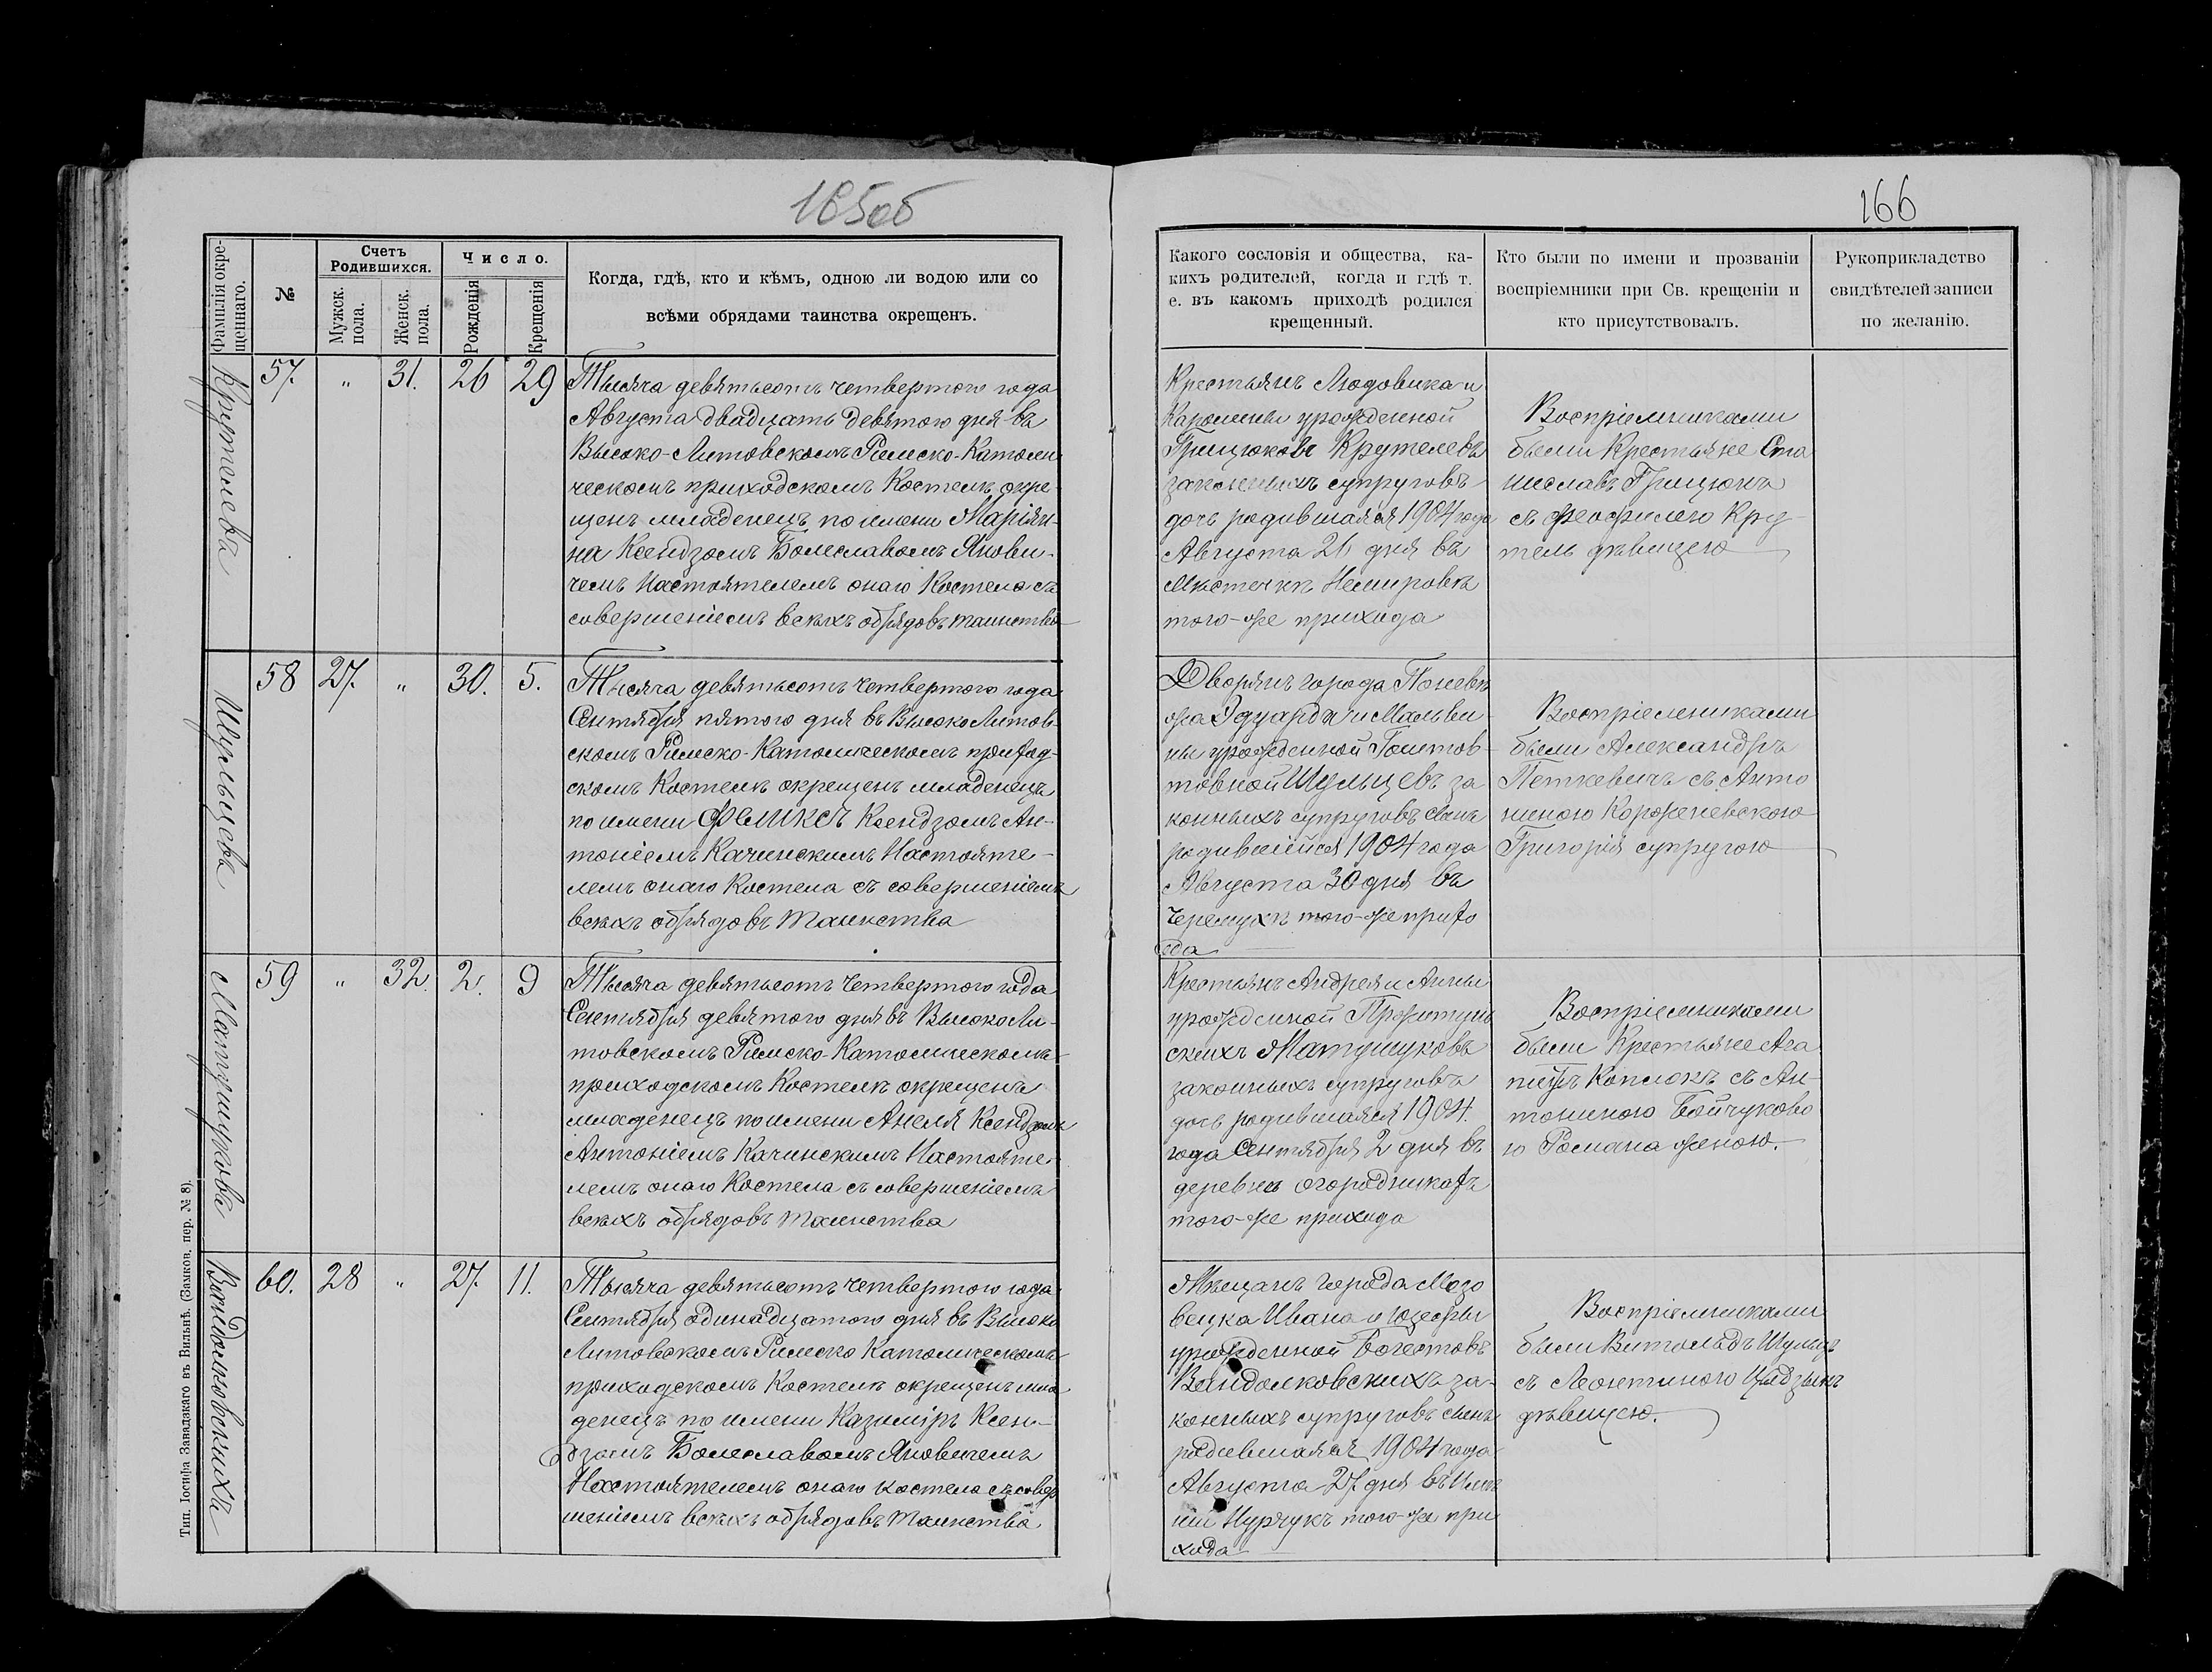 165об
166
Фамилія окре-
щеннаго.
№
Счетъ
Родившихся.
Мужск.
пола.
Женск.
пола.
Число.
Рожденія
Крещенія
Когда, гдѣ, кто и кѣмъ, одною ли водою или со
всѣми обрядами таинства окрещенъ.
Какого сословія и общества, ка-
кихъ родителей, когда и гдѣ т.
е. въ какомъ приходѣ родился
крещенный.
Кто были по имени и прозваніи
воспріемники при Св. крещеніи и
кто присутствовалъ.
Рукоприкладство
свидѣтелей записи
по желанію.
Крутелева
57. " 31. 26 29
Тысяча девятьсотъ четвертого года
Августа двадцать девятого дня въ
Высоко-Литовскомъ Римско-Католи
ческомъ приходскомъ Костелѣ окре-
щенъ младенецъ по имени Маріян-
на Ксендзомъ Болеславомъ Янови-
чемъ Настоятелемъ онаго Костела съ
совершеніемъ всѣхъ обрядовъ таинства
Крестьянъ Людовика и
Каролины урожденной
Грицюковъ Крутелевъ
законныхъ супруговъ
дочь родившаяся 1904 года
Августа 26 дня въ
Мѣстечкѣ Немировѣ
того-же прихода
Воспріемниками
были Крестьяне Ста
ниславъ Грицюкъ
съ Феофилею Кру
тель дѣвицею
Шульцева
58 27. " 30. 5.
Тысяча девятьсотъ четвертого года
Сентября пятого дня въ Высоко Литов-
скомъ Римско-Католическомъ приход-
скомъ Костелѣ окрещенъ младенецъ
по имени Феликсъ Ксендзомъ Ан-
тоніемъ Качинскимъ Настояте-
лемъ онаго Костела съ совершеніемъ
всѣхъ обрядовъ таинства
Дворянъ города Поневѣ
жа Эдуарда и Мальви-
ны урожденной Гоштов-
товной Шульцевъ за
конныхъ супруговъ сынъ
родившійся 1904 года
Августа 30 дня въ
Черемухѣ того-же прихо
да
Воспріемниками
были Александръ
Петкевичъ съ Анто
ниною Корженевскою
Григорія супругою
Матушукова
59 " 32. 2. 9
Тысяча девятьсотъ четвертого года
Сентября девятого дня въ Высоко Ли-
товскомъ Римско-Католическомъ
приходскомъ Костелѣ окрещенъ
младенецъ по имени Анеля Ксендзомъ
Антоніемъ Качинскимъ Настояте-
лемъ онаго Костела съ совершеніемъ
всѣхъ обрядовъ таинства
Крестьянъ Андрея и Анны
урожденной
скихъ Матушуковъ
законныхъ супруговъ
дочь родившаяся 1904.
года Сентября 2 дня въ
деревнѣ Огородникахъ
того-же прихода
Воспріемниками
были Крестьяне Ага
питъ Коплюкъ съ Ан-
тониною Бойчуково
ю Романа женою.
Вандолковскихъ
60. 28 " 27. 11.
Тысяча девятьсотъ четвертого года
Сентября одинадцатого дня въ Высоко
Литовскомъ Римско Католическомъ
приходскомъ Костелѣ окрещенъ мла
денецъ по имени Казиміръ Ксен-
дзомъ Болеславомъ Яновичемъ
Настоятелемъ онаго костела съ совер
шеніемъ всѣхъ обрядовъ таинства
Мѣщанъ города Мазо
вецка Ивана и Юзефы
урожденной
Вандолковскихъ за-
конныхъ супруговъ сынъ
родившаяся 1904 года
Августа 27 дня въ Имѣ
ніи Нурчукъ того-же при
хода
Воспріемниками
были Витольдъ Шульцъ
съ Леонтиною
дѣвицею.
Тип. Іосифа Завадзкаго въ Вильнѣ. (Замков. пер. № 8).